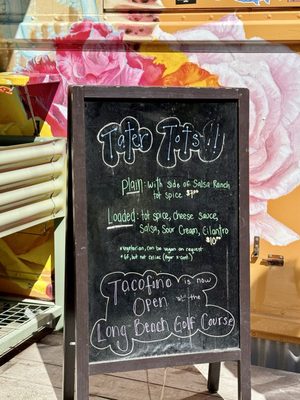 Tater Tots!!
Plain: with side of Salsa Ranch
tot spice $7⁰⁰
Loaded: tot spice, Cheese Sauce,
Salsa, Sour Cream, Cilantro
$10⁰⁰
*vegetarian, can be vegan on request
*GF, but not celiac (fryer x-cont.)
Tacofino is now
Open at the
Long Beach Golf Course